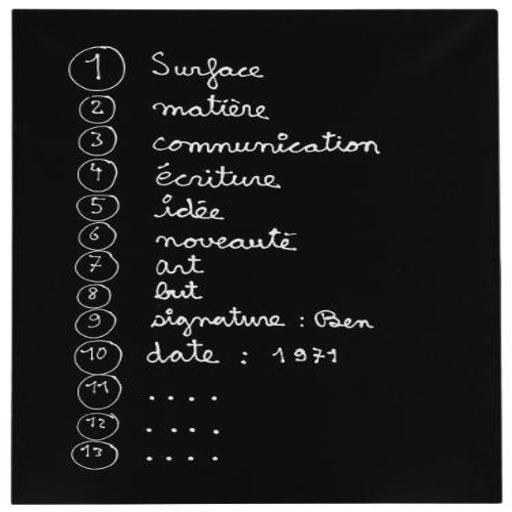 1 Surface
2 matière
3 communication
4 écriture
5 idée
6 noveauté
7 art
8 but
9 signature : Ben
10 date : 1971
11 ....
12 ....
13 ....